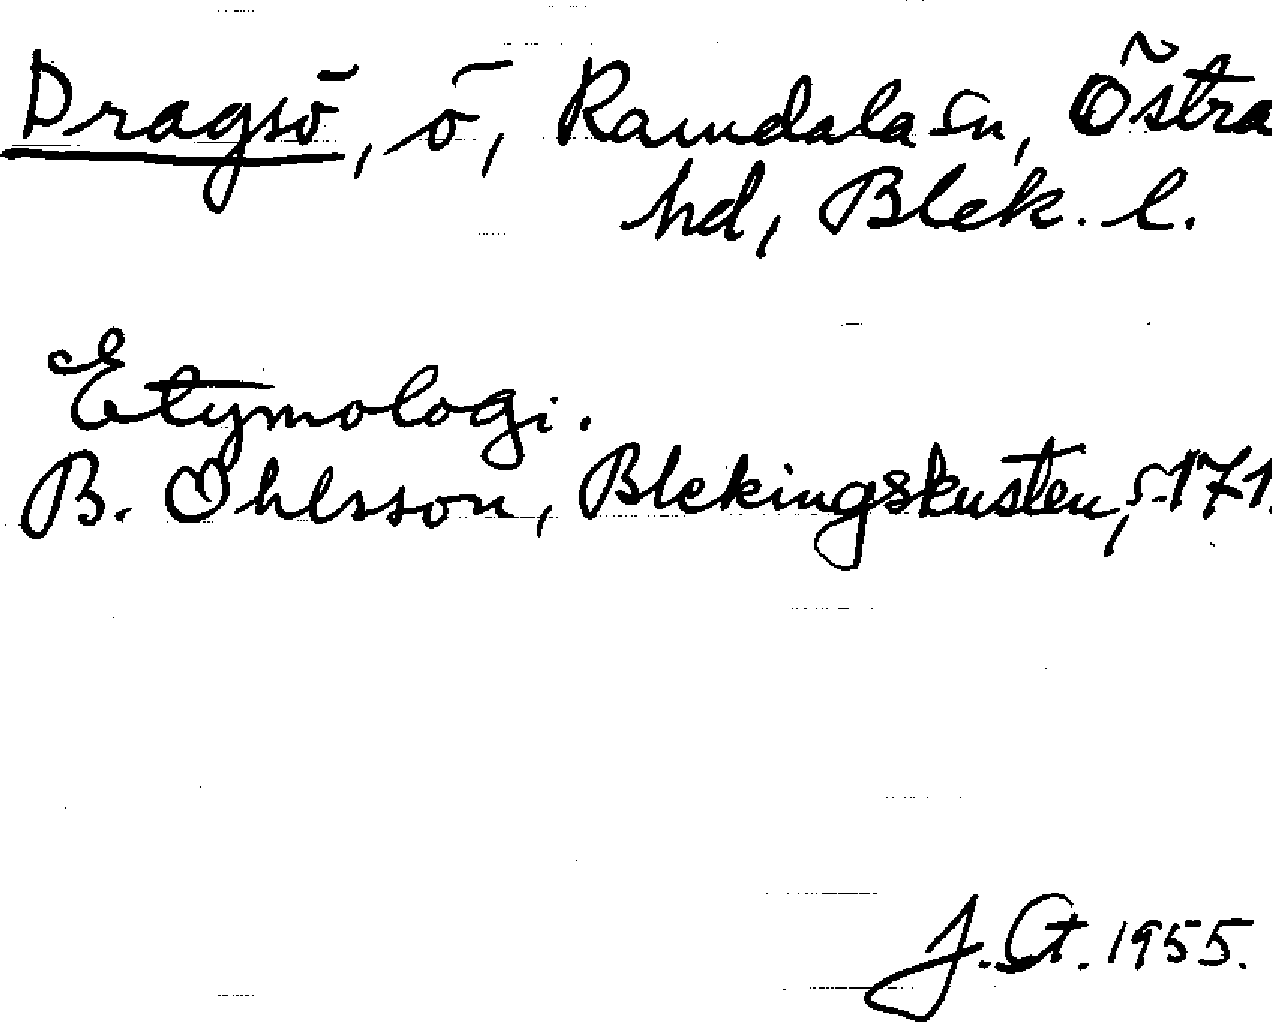 Dragsö, ö, Ramdala sn, Östra
hd, Blek. l.
Etymologi.
B. Ohlsson, Blekingskusten, s. 171.
1955.